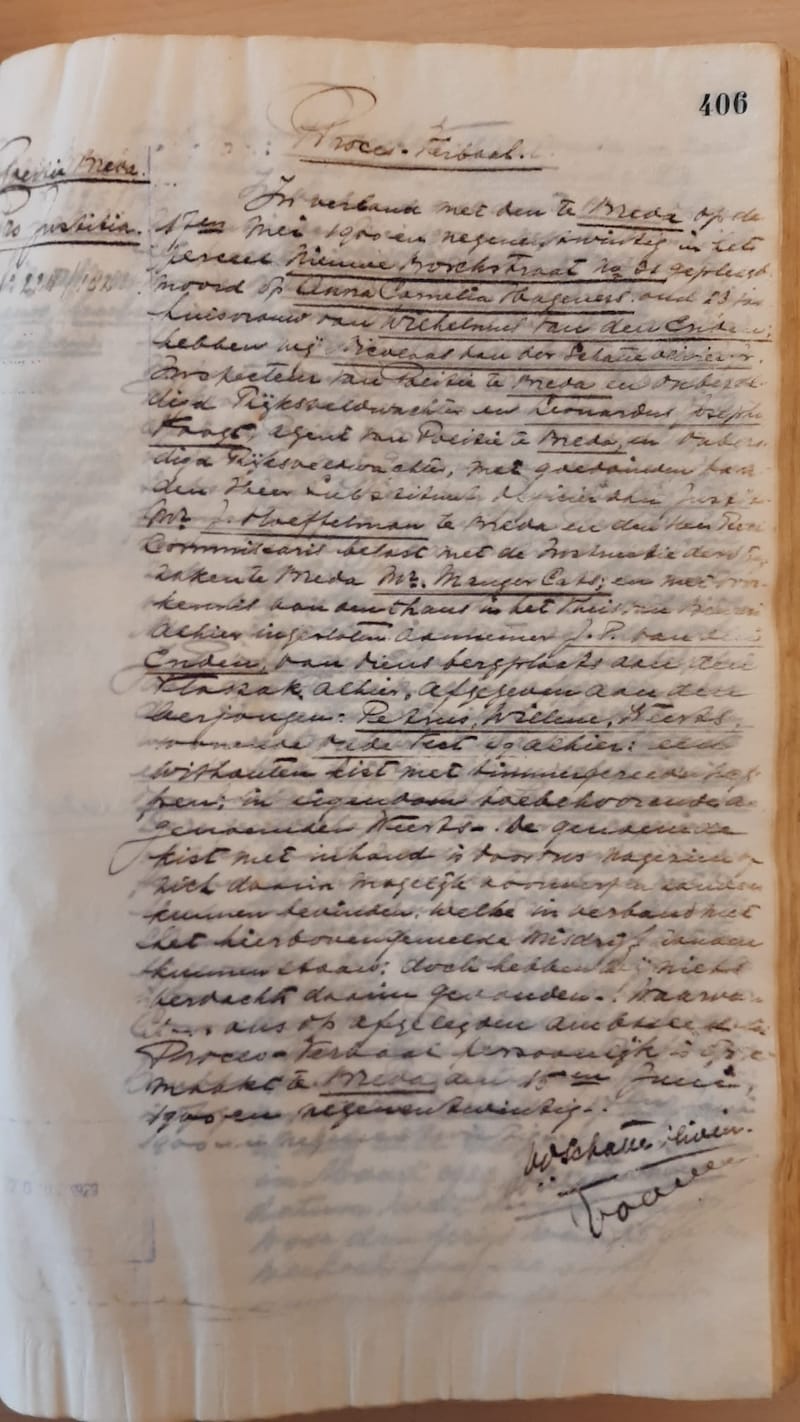 406
Proces-Verbaal.
Breda.
justitia.
In verband met den te Breda op de
17en Mei 1900 en negenentwintig in het
perceel Nieuwe Borchstraat No 31 gepleegd
moord op Anna Cornelia oud 23
huisvrouw van Wilhelmus van den Enden;
hebben wij van der Schatte Olivier Jr.
Inspecteur van Politie te Breda en onbezol-
digd Rijksveldwachter en Leonardus Joseph
agent van Politie te Breda, en onbezol-
digd Rijksveldwachter, met goedvinden van
den Heer Substituut Officier van Justi
Mr. J. te Breda en den Heer
Commissaris belast met de Instructie der
zaken te Breda Mr. Menger Cats; en met
kennis van den thans in het Huis van
alhier ingesloten aannemer J. P. van den
Enden, van diens bergplaats aan den
alhier, afgegeven aan den
Petrus, Willem, Weerts
Oude Vest alhier: een
withouten kist met timmergereedschap-
pen; in eigendom toebehoorende a
genoemden Weerts. De genoemde
kist met inhoud is door ons nagezien
zich daarin mogelijk voorwerpen zouden
kunnen bevinden, welke in verband met
het hierbovengemelde misdrijf zouden
kunnen staan; doch hebben wij niets
verdacht daarin gevonden. Waarva
ons op afgelegden ambtseed
Proces-Verbaal persoonlijk is opge
maakt te Breda, den 15en Juni,
1900 en negenentwintig.
vdSchatte Olivier